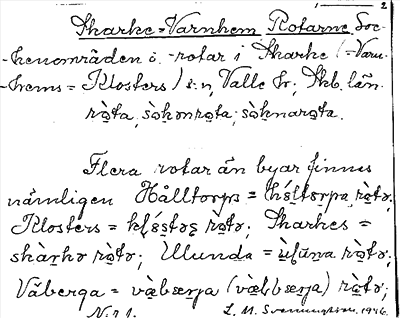 2
Skarke=Varnhem Rotarne Soc-
-kenområden i. -rotar i Skarke (=Varn-
-hems = Klosters) s:n, Valle hr; Skb. län.
rota, sòkənrota; sòknarota.
Flera rotar än byar finnes
nämligen Hålltorps = hóltorps ròtə;
Klosters = klóstəs ròtə; Skarkes =
skàrkə ròtə; Ulunda = ùluna ròtə;
Våberga = vàbærja (vàbbærja) ròtə;